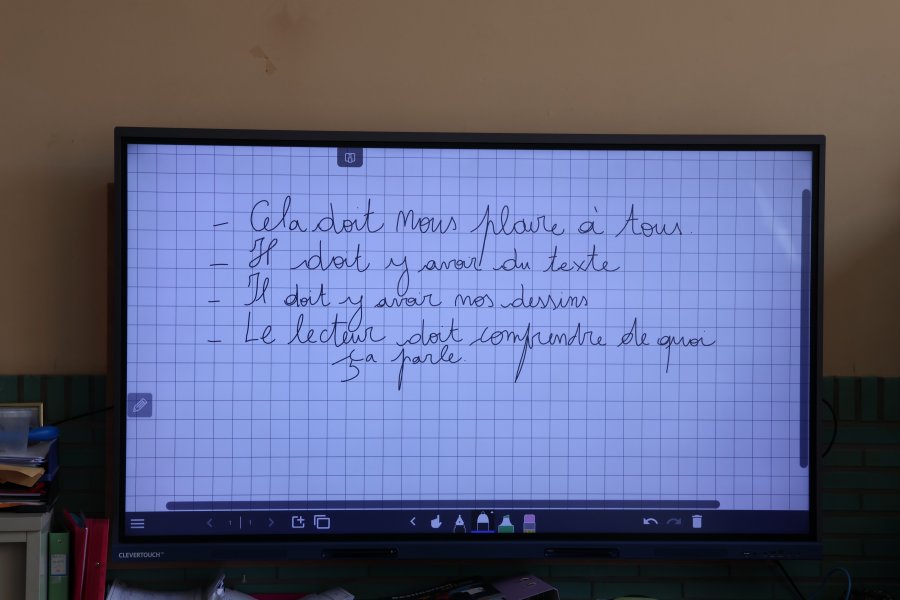 - Cela doit nous plaire à tous.
- Il doit y avoir du texte
- Il doit y avoir nos dessins
- Le lecteur doit comprendre de quoi
ça parle.
1 | 1
CLEVERTOUCH